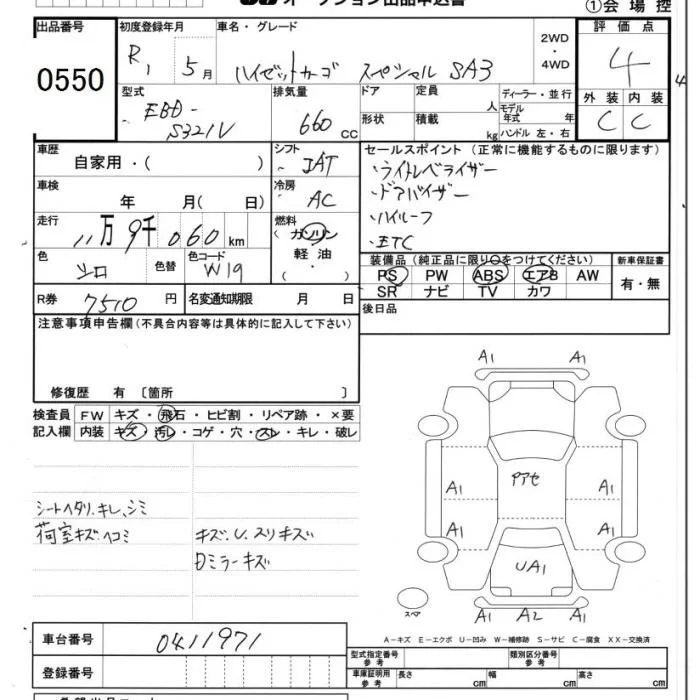 オークション出品申込書
①会場控
出品番号 初度登録年月 車名・グレード 評価点
0550 R1 5月 ハイゼットカーゴ スペシャル SA3 2WD・4WD 4
型式 排気量 ドア 定員 人 ディーラー・並行 外装 内装
EBD-S321V 660cc 形状 積載 kg モデル年式 年式 ハンドル 左・右 C C
車歴 自家用・( ) シフト IAT セールスポイント(正常に機能するものに限ります)
・ライトレベライザー
車検 年 月(日) 冷房 AC ・ドアバイザー
・ハイルーフ
走行 11万9千060km 燃料 (ガソリン 軽油・ ) ・ETC
色 シロ 色替 色コード W19
装備品(純正品に限り○をつけてください) 新車保証書
PS PW ABS エアB AW 有・無
SR ナビ TV カワ
R券 7510円 名変通知期限 月 日 後日品
注意事項申告欄(不具合内容等は具体的に記入して下さい)
修復歴 有 〔箇所 〕
検査員記入欄 FW キズ・飛石・ヒビ割・リペア跡・×要
内装 キズ・汚レ・コゲ・穴・スレ・キレ・破レ
A1 A1
アアセ
A1 A1
A1 A1
シートヘタリ.キレ.シミ
荷室キズ.ヘコミ キズ.U.スリキズ
Dミラーキズ
UA1
スペア
A1 A2 A1
A-キズ E-エクボ U-凹み W-補修跡 S-サビ C-腐食 XX-交換済
車台番号 0411971
型式指定番号 参考 類別区分番号 参考
登録番号 車庫証明用 参考 長さ cm 幅 cm 高さ cm